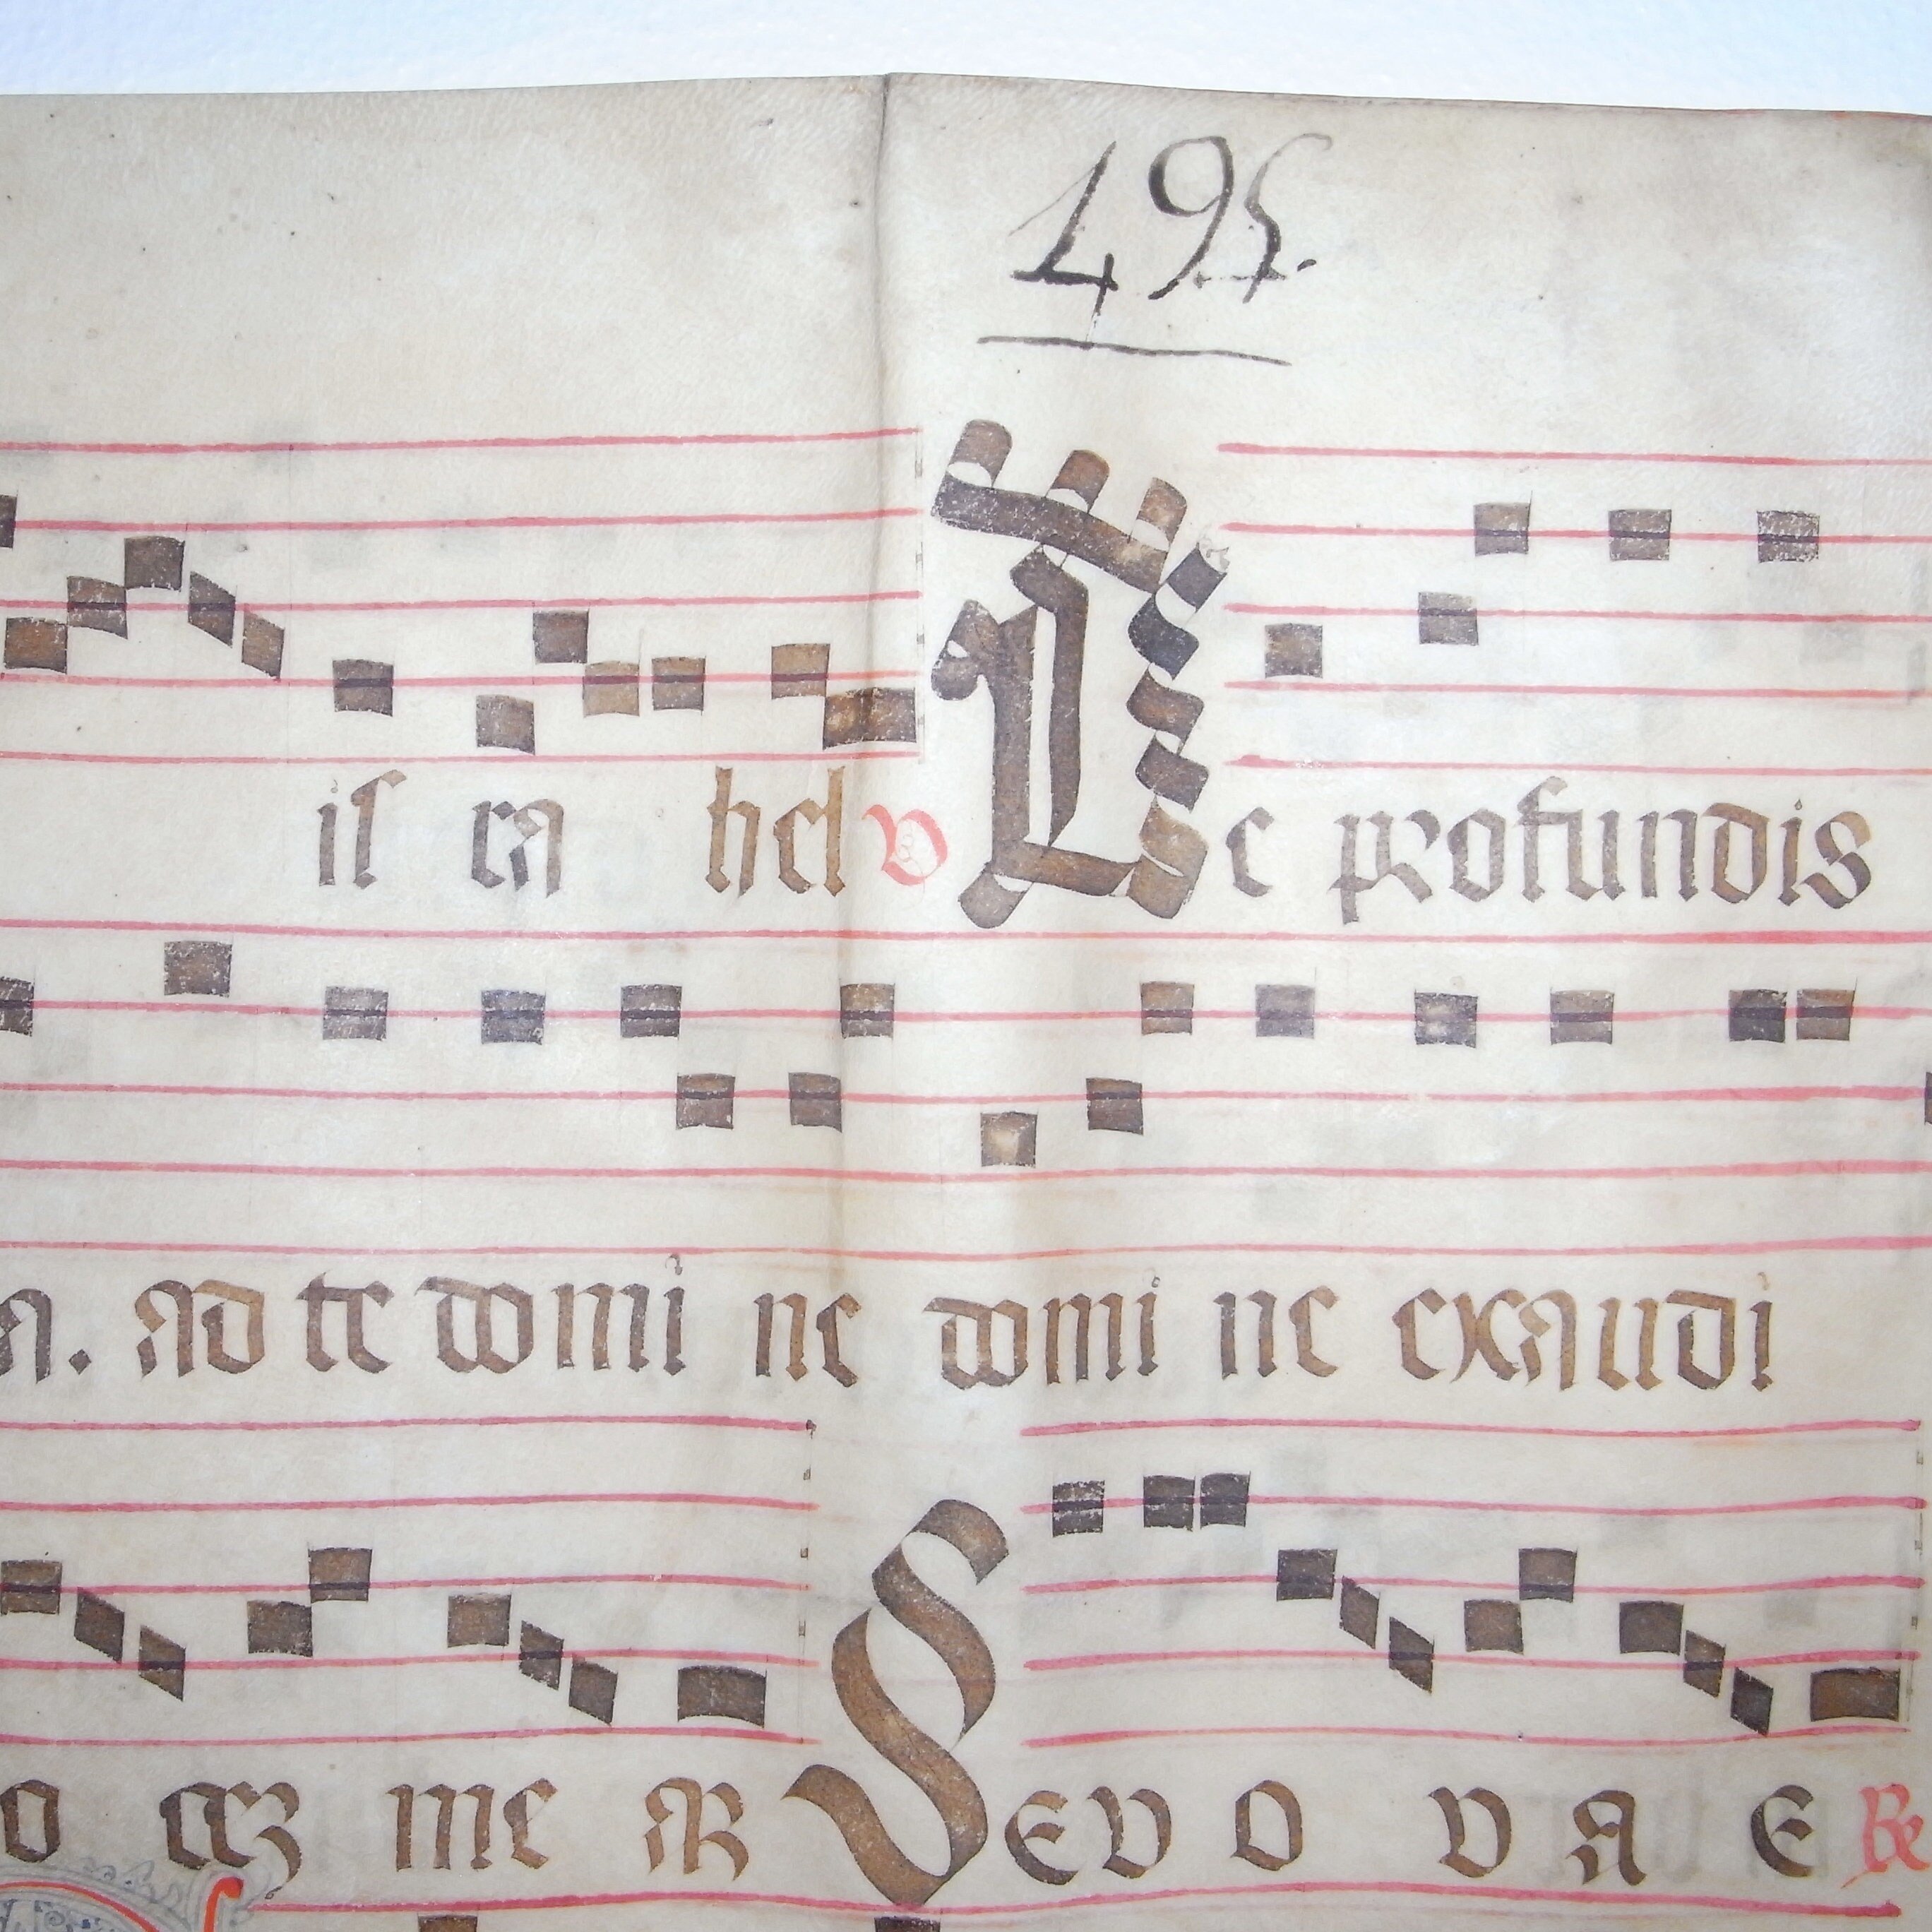 495.
is ra hel v De profundis
a. ad te domi ne domi ne exaudi
o cez me ar Sevo v a e Re